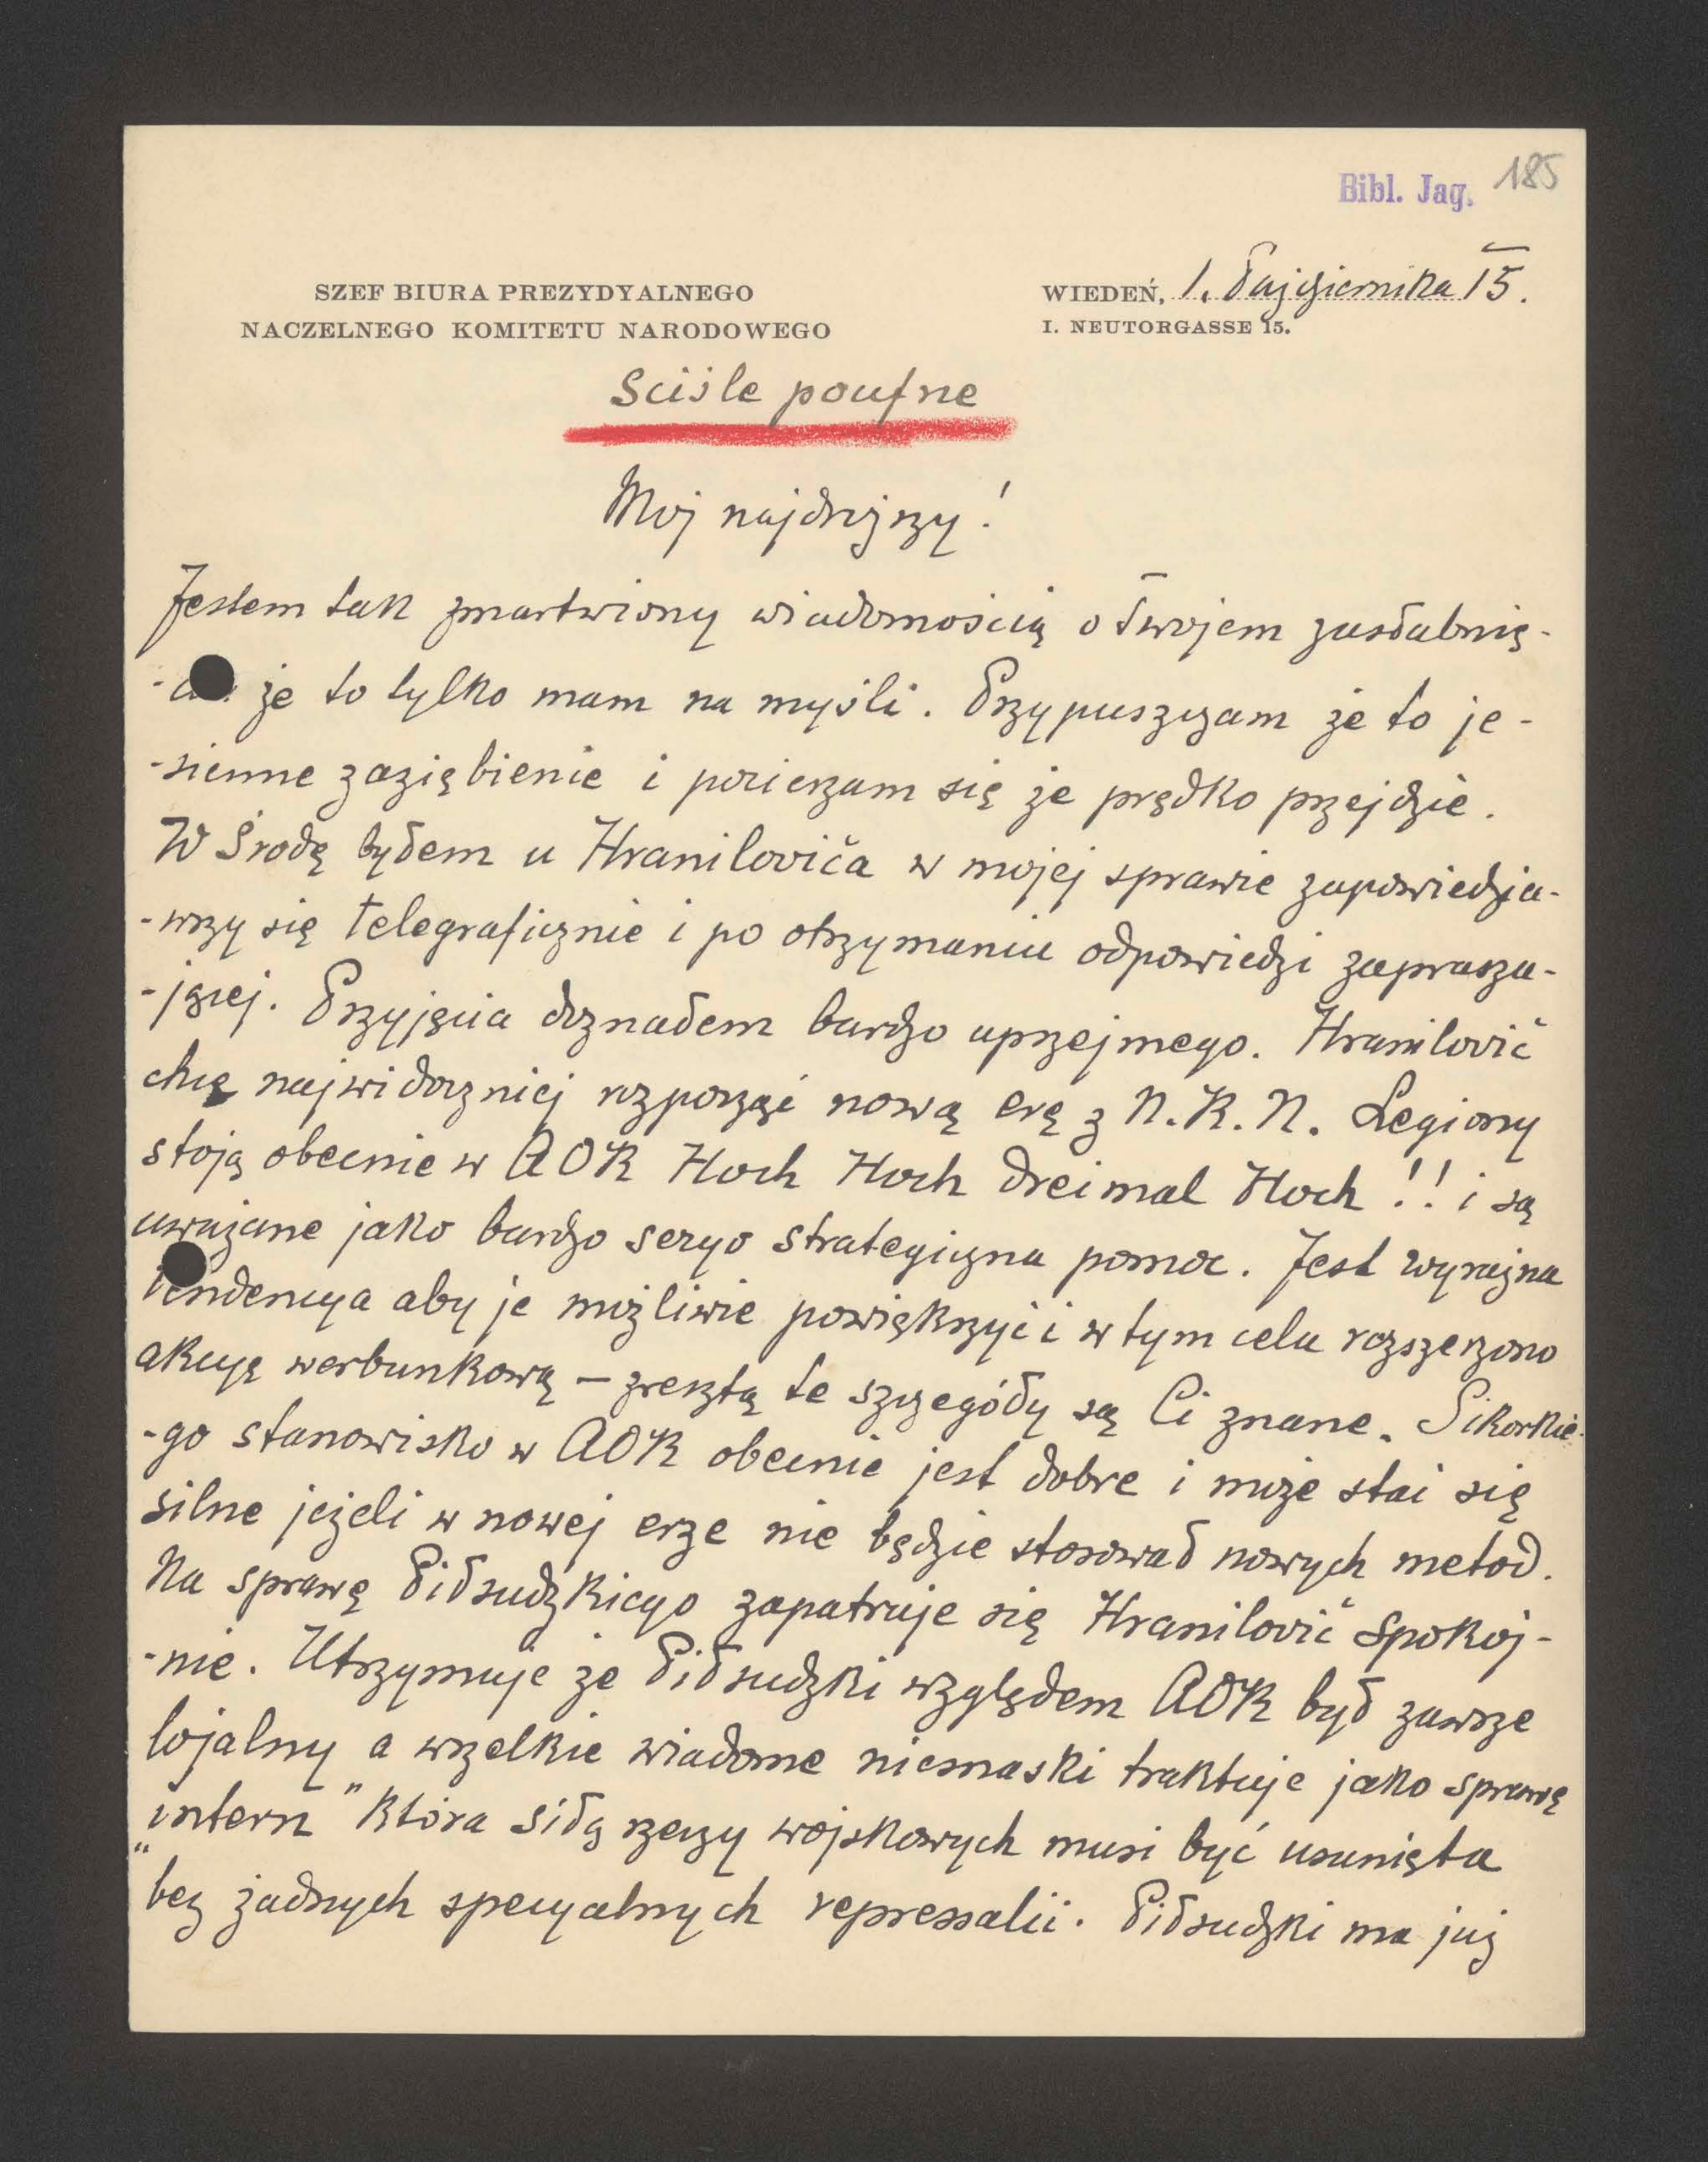 Bibl. Jag. 185
SZEF BIURA PREZYDYALNEGO
NACZELNEGO KOMITETU NARODOWEGO
WIEDEŃ, 1. Października 15.
I. NEUTORGASSE 15.
Sciśle poufne
Moj najdrozszy!
Jestem tak zmartwiony wiadomością o Twojem zasłabnię-
że to tylko mam na myśli. Przypuszczam że to je-
-sienne zaziębienie i pocieszam się że prędko przejdzie.
W Środę byłem u Hraniloviča w mojej sprawie zapowiedzia-
-wszy się telegraficznie i po otrzymaniu odpowiedzi zaprasza-
-jącej. Przyjęcia doznałem bardzo uprzejmego. Hranilovič
chcę najwidoczniej rozpocząć nową erę z N.K.N. Legiony
stoją obecnie w AOK Hoch Hoch dreimal Hoch!! i są
uważane jako bardzo seryo strategiczna pomoc. Jest wyraźna
tendencya aby je możliwie powiększyć i w tym celu rozszerzono
akcyę werbunkową — zresztą te szczegóły są Ci znane. Sikorkie-
-go stanowisko w AOK obecnie jest dobre i może stać się
silne jeżeli w nowej erze nie będzie stosował nowych metod.
Na sprawę Piłsudzkiego zapatruje się Hranilovič spokoj-
-nie. Utrzymuje że Piłsudzki względem AOK był zawsze
lojalny a wszelkie wiadome niesnaski traktuje jako sprawę
„intern" która siłą rzeczy wojskowych musi być usunięta
bez żadnych specyalnych repressalii. Piłsudzki ma już